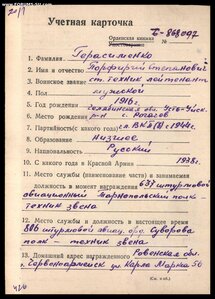 WWW.FORUMS-SU.COM
20/11
Учетная карточка
Орденская книжка
Удостоверение
Б-868092
1. Фамилия Герасименко
2. Имя и отчество Порфирий Степанович
3. Воинское звание ст. техник лейтенант
4. Пол мужской
5. Год рождения 1916 г.
6. Место рождения
7. Партийность (с какого года) чл. ВКП(б) с 1944 г.
8. Образование Низшее
9. Национальность Русский
10. С какого года в Красной Армии 1938 г.
11. Место службы (наименование части) и занимаемая
должность в момент награждения 637 штурмовой
авиационный Тарнопольский полк -
техник звена
12. Место службы и должность в настоящее время
806 штурмовой авиац. орд. Суворова
полк - техник звена
13. Домашний адрес награжденного Ровенская обл.
г. Червоноармейск ул. Карла Маркса 56
(См. на об.)